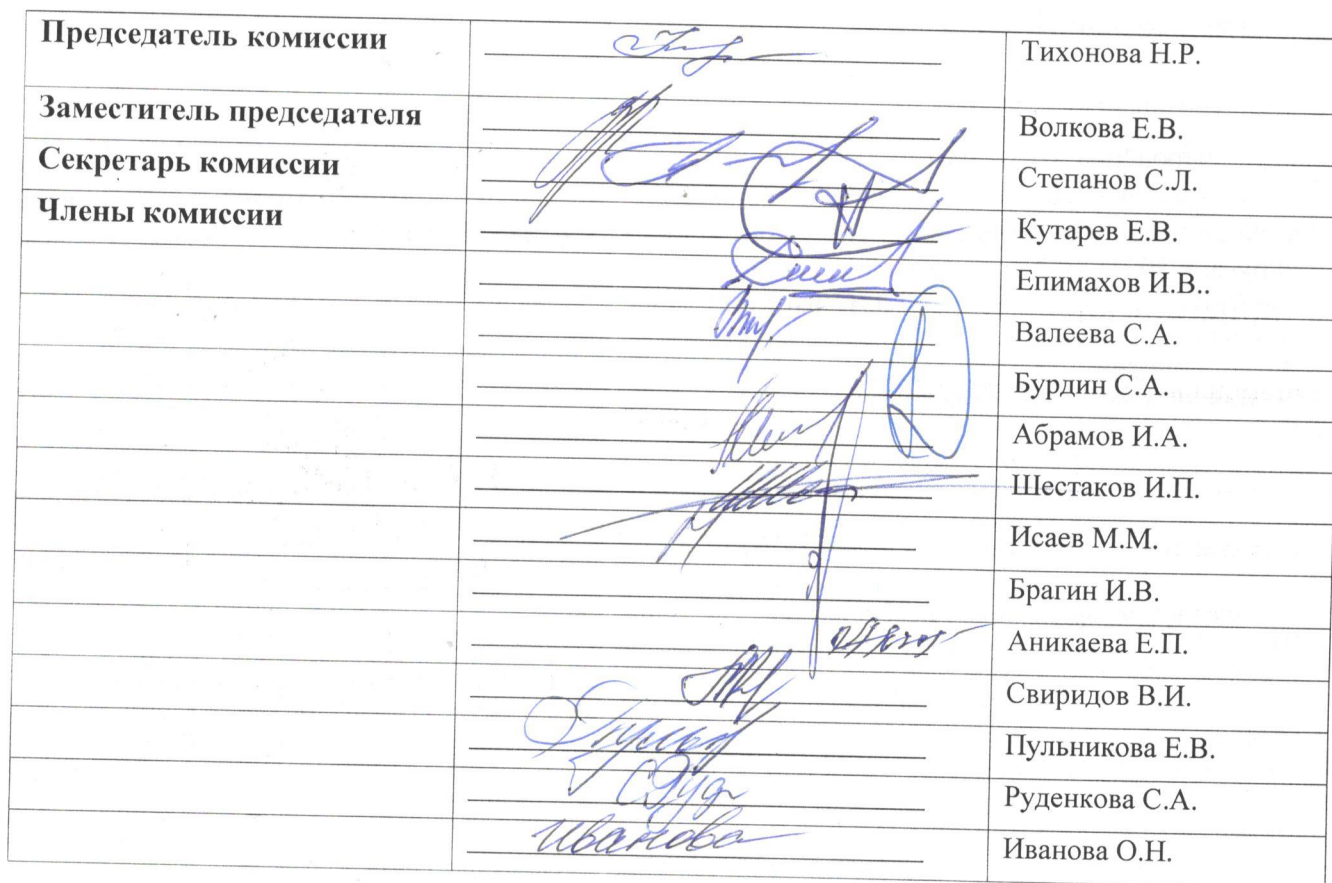 Председатель комиссии Тихонова Н.Р.
Заместитель председателя Волкова Е.В.
Секретарь комиссии Степанов С.Л.
Члены комиссии Кутарев Е.В.
Епимахов И.В..
Валеева С.А.
Бурдин С.А.
Абрамов И.А.
Шестаков И.П.
Исаев М.М.
Брагин И.В.
Аникаева Е.П.
Свиридов В.И.
Пульникова Е.В.
Руденкова С.А.
Иванова Иванова О.Н.